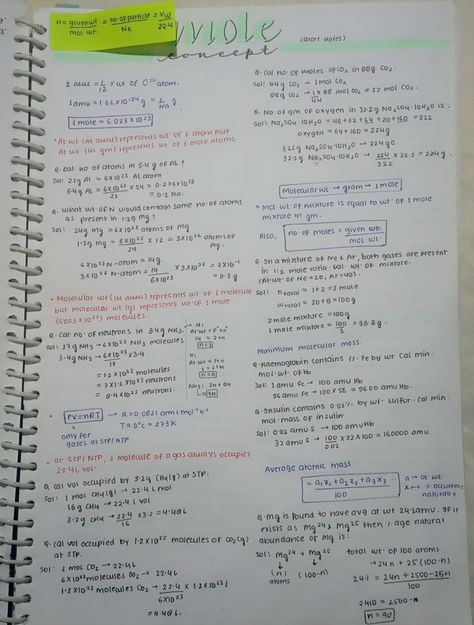 n= given wt / mol wt. = no. of particle / NA = V(l) / 22.4
mole
concept
(short notes)
1 amu = 1/12 × wt of C12 atom.
1 amu = 1.66×10-24 g = 1/NA g
1 mole = 6.023×1023
* At wt (in amu) represents wt of 1 atom but
At wt (in gm) represents wt of 1 mole atoms
Q. cal no. of atoms in 5.4 g of Al?
Sol: 27g Al = 6×1023 Al atom
5.4g Al = 6×1023/27 × 5.4 = 0.2×6×1023
= 0.2 NA.
Q. what wt of N would contain same no. of atoms
as present in 1.2g Mg?
Sol: 24g mg = 6×1023 atoms of Mg
1.2g mg = 6×1023/24 × 1.2 = 3×1022 atoms of
mg.
6×1023 N-atom = 14g
3×1022 N-atom = 14/6×1023 × 3×1022 = 7×10-1
= 0.7g
• Molecular wt (in amu) represents wt of 1 molecule
but molecular wt (g) represents wt of 1 mole
(6.023×1023) molecules
Q. cal no. of neutrons in 3.4g NH3.
Sol: 17g NH3 → 6×1023 NH3 molecules
3.4g NH3 → 6×1023/17 × 3.4
= 1.2×1023 molecules
= 7×1.2×1023 neutrons
= 8.4×1023 neutrons
N:
At.wt = p++n0
14 = 7+n
n=7
H:
At.wt = p+n
1 = 1+n
n=0
PV=nRT → R = 0.0821 atm l mol-1 k-1
T = 0°C = 273 K
only for
gases at STP/NTP
- at STP/NTP, 1 molecule of gas always occupies
22.4L vol.
Q. cal vol occupied by 3.2g CH4(g) at STP.
Sol: 1 mol CH4(g) → 22.4 L mol
16g CH4 → 22.4 L vol
3.2g CH4 → 22.4/16 × 3.2 = 4.48L
Q. cal vol occupied by 1.2×1023 molecules of CO2(g)
at STP.
Sol: 1 mol CO2 → 22.4L
6×1023 molecules CO2 → 22.4L
1.2×1023 molecules CO2 → 22.4/6×1023 × 1.2×1023 L
= 4.48L.
Q. Cal no. of moles of CO2 in 88g CO2.
Sol: 44g CO2 → 1 mol CO2
88g CO2 → 1/44 × 88 mol CO2 = 2 mol CO2.
Q. No. of gm of oxygen in 32.2g Na2SO4.10H2O is:
Sol: Na2SO4.10H2O = 46+32+64+20+160 = 322
oxygen = 64+160 = 224g
322g Na2SO4.10H2O → 224g O
32.2g Na2SO4.10H2O → 224/322 × 32.2 = 22.4g.
Molecular wt → gram → 1 mole
* mol wt of mixture is equal to wt of 1 mole
mixture in gm.
Also,
no of moles = given wt / mol wt.
Q. In a mixture of Ne & Ar, both gases are present
in 1:2 mole ratio. Cal. wt of mixture.
(At.wt of Ne=20, Ar=40).
Sol: ntotal = 1+2 = 3 mole
wtotal = 20+80 = 100g
3 mole mixture = 100g
1 mole mixture = 100/3 = 33.3g.
Minimum molecular mass:
Q. Haemoglobin contains 1% Fe by wt. Cal min.
mol. wt of Hb.
Sol: 1 amu Fe → 100 amu Hb
56 amu Fe → 100×56 = 5600 amu Hb.
Q. Insulin contains 0.02% by wt sulfur. Cal min.
mol. mass of insulin.
Sol: 0.02 amu S → 100 amu
32 amu S → 100/0.02 × 32 = 160000 amu
Average atomic mass
= a1x1+a2x2+a3x3 / 100
a → at wt
x → % occurrence
naturally
Q. mg is found to have avg at wt 24.1 amu. If it
exists as Mg24 & Mg25 then % age natural
abundance of mg is:
Sol: Mg24 + Mg25
(n) (100-n)
atoms
total wt of 100 atoms
→ 24n + 25(100-n)
24.1 = 24n+2500-25n / 100
2410 = 2500-n
n=90